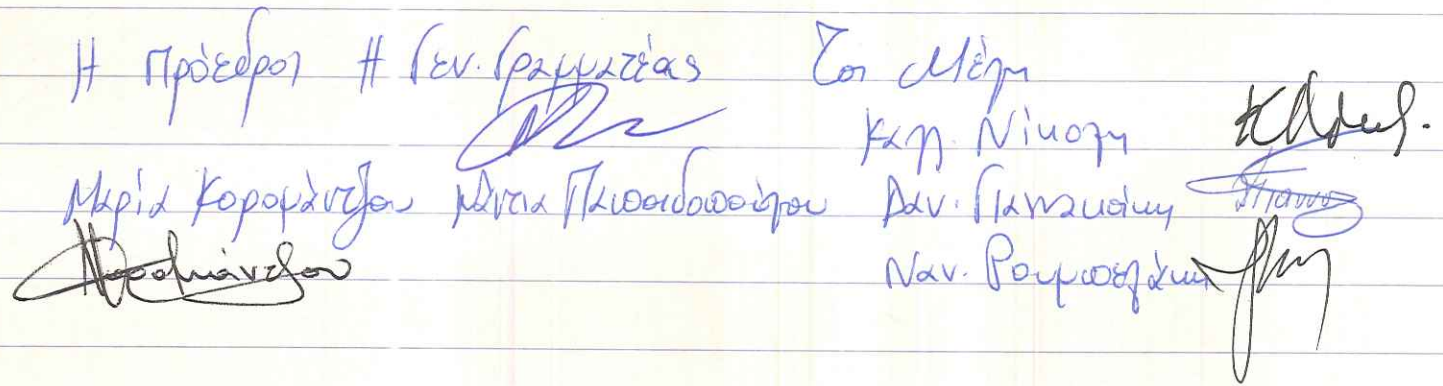 Η Πρόεδρος Η Γεν. Γραμματέας Τα Μέλη
Καλλ. Νίκολη
Μαρία Κορομάντζου Νάντια Παπαδοπούλου Δαν. Γιαννακάκη
Ναν. Ρουμπελάκη